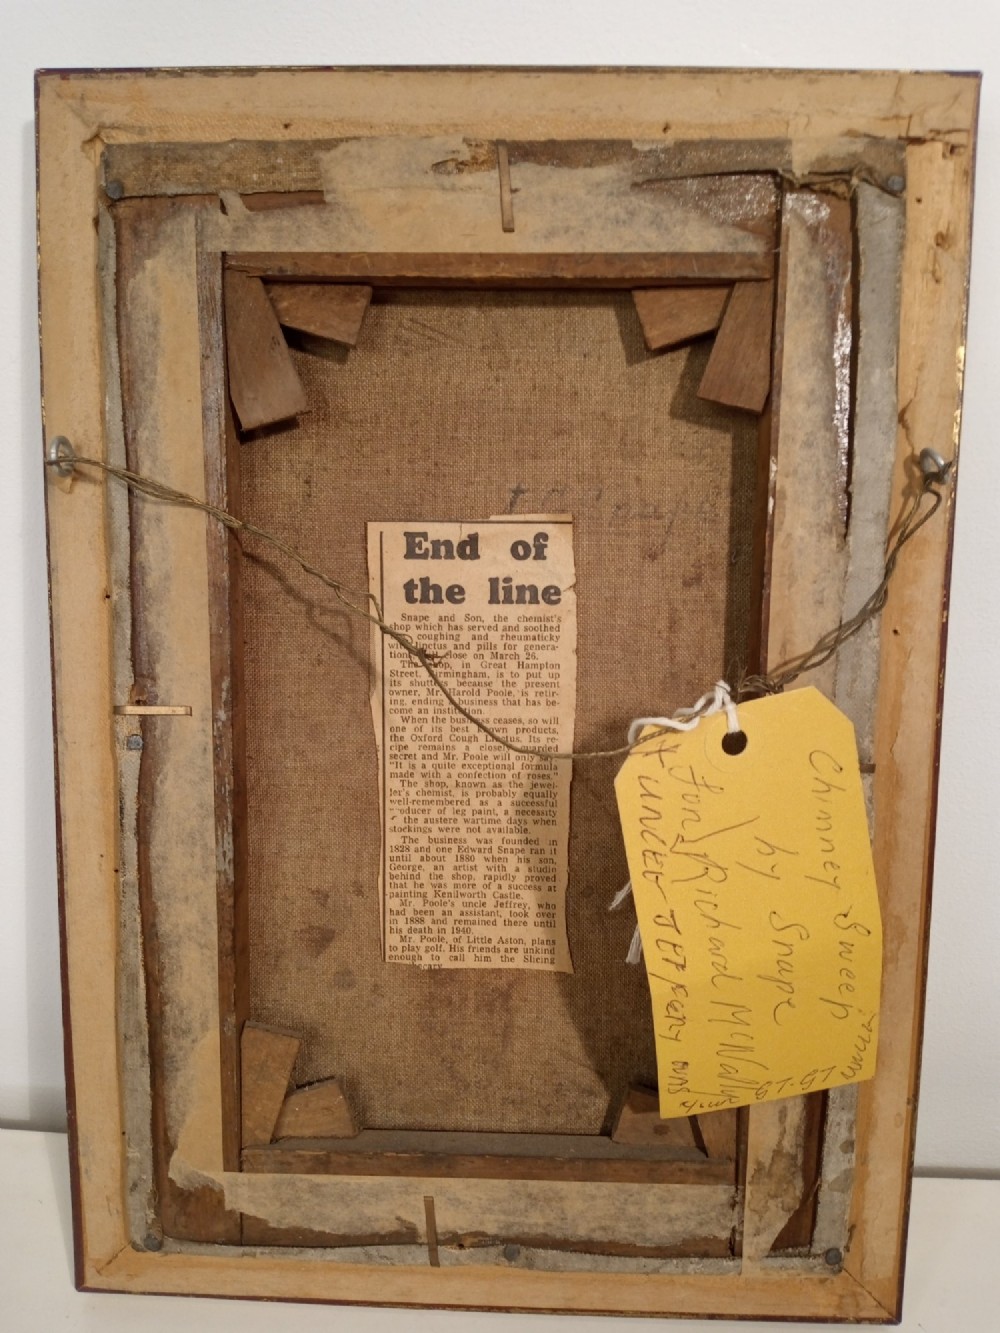 End of
the line
Snape and Son, the chemist's
shop which has served and soothed
coughing and rheumaticky
with linctus and pills for genera-
close on March 26.
The shop, in Great Hampton
Street, Birmingham, is to put up
its shutters because the present
owner, Mr. Harold Poole, is retir-
ing, ending a business that has be-
come an institution.
When the business ceases, so will
one of its best known products,
the Oxford Cough Linctus. Its re-
cipe remains a closely guarded
secret and Mr. Poole will only say
"It is a quite exceptional formula
made with a confection of roses."
The shop, known as the jewel-
ler's chemist, is probably equally
well-remembered as a successful
producer of leg paint, a necessity
the austere wartime days when
stockings were not available.
The business was founded in
1828 and one Edward Snape ran it
until about 1880 when his son,
George, an artist with a studio
behind the shop, rapidly proved
that he was more of a success at
painting Kenilworth Castle.
Mr. Poole's uncle Jeffrey, who
had been an assistant, took over
in 1888 and remained there until
his death in 1940.
Mr. Poole, of Little Aston, plans
to play golf. His friends are unkind
enough to call him the Slicing
Chimney Sweep
by Snape
for Richard McNally
UNCLE JEFFERY